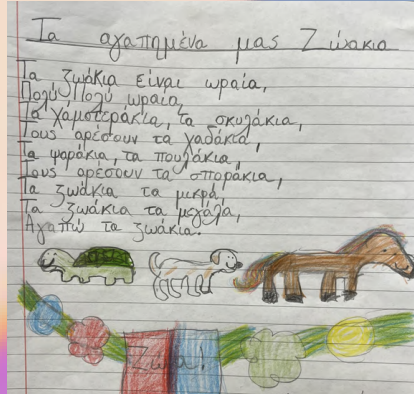 Τα αγαπημένα μας Ζωάκια
Τα ζωάκια είναι ωραία,
Πολύ Πολύ ωραία,
Τα χάμστεράκια, τα σκυλάκια,
Τους αρέσουν τα χαδάκια,
Τα ψαράκια, τα πουλάκια,
Τους αρέσουν τα σποράκια,
Τα ζωάκια τα μικρά,
Τα ζωάκια τα μεγάλα,
Αγαπώ τα ζωάκια.
Ζώα!